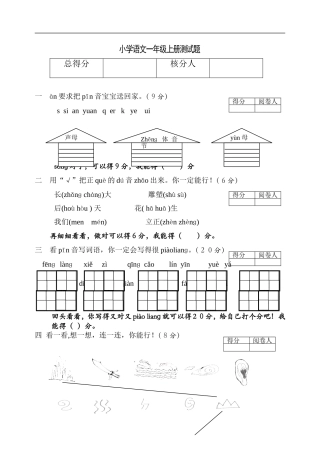 小学语文一年级上册测试题
总得分 核分人
一 àn要求把pīn音宝宝送回家。（9分） 得分 阅卷人
s si an yuan q er k ye ui
声母 Zhěng体音节 yùn母
sòng对了，可以得9分，我能得（ ）分
二 用“√”把正què的dú音zhǎo出来，你一定能行！（6分） 得分 阅卷人
长(zhǎng chǎng)大 雕塑(shù sù)
后(hòu hòu)天 花(hā huā)生
我们(men mén) 立正(zhèn zhèng)
再细细看看，做对可以得6分，我能得（ ）分。
三 看pīn音写词语，你一定会写得很piàoliang。（20分） 得分 阅卷人
fēng làng xiě zì qīng cǎo lín yīn yuè yá
回头看看，你写得又对又piào liang就可以得20分，给自己打个分吧！我
能得（ ）分。
四 看一看,想一想，连一连，你能行！（8分） 得分 阅卷人